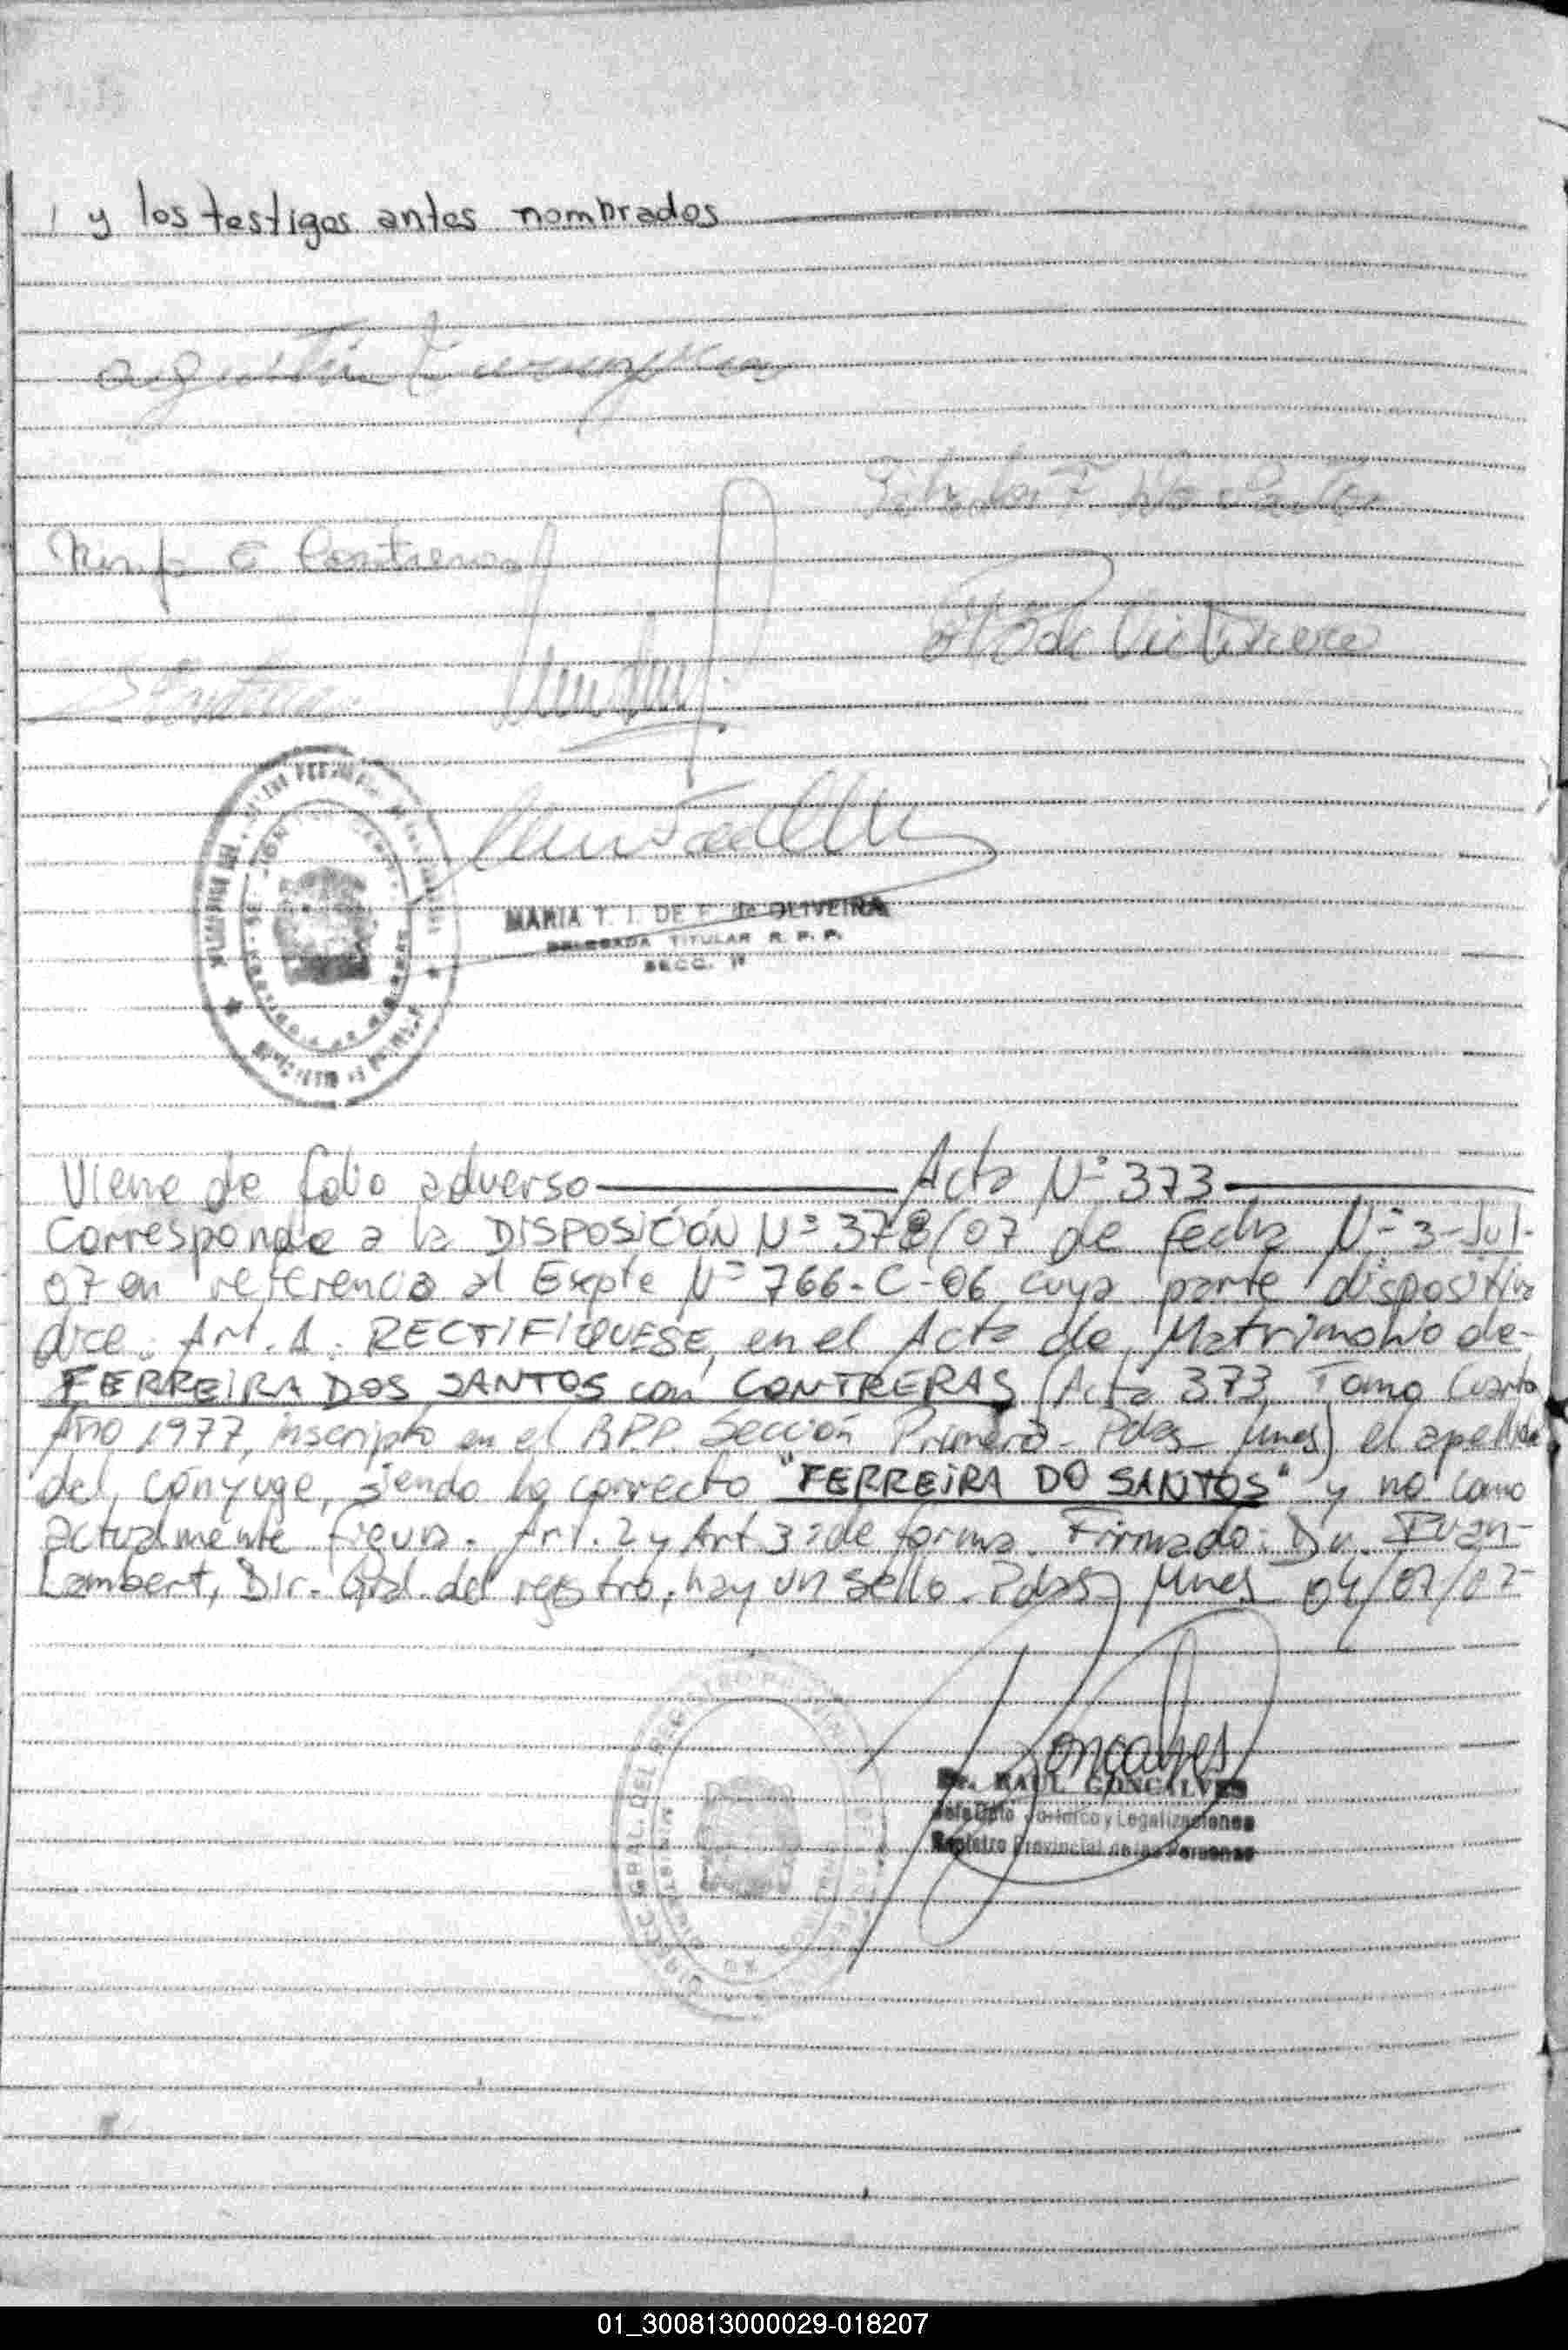 y los testigos antes nombrados
C Contreras
MARIA T. I. DE F. de OLIVEIRA
DELEGADA TITULAR R. P. P.
SECC. 1ª
Viene de folio adverso Acta Nº 373
Corresponde a la DISPOSICIÓN Nº 378/07 de fecha Nº 3-Jul-
07 en referencia al Expte Nº 766-C-06 cuya parte dispositiva
dice: Art. 1. RECTIFIQUESE, en el Acta de Matrimonio de
FERREIRA DOS SANTOS con CONTRERAS (Acta 373 Tomo Cuarto
Año 1977, inscripto en el RPP. Sección Primera - Pdas - Mnes) el apellido
del cónyuge, siendo lo correcto "FERREIRA DO SANTOS" y no como
actualmente figura. Art. 2 y Art 3: de forma. Firmado: Dr. Ivan
Lambert, Dir. Gral. del registro, hay un sello. Pdas, Mnes 04/07/07-
Goncalves
Dr. RAUL GONCALVES
Jefe Dpto Jurídico y Legalizaciones
Registro Provincial de las Personas
01_300813000029-018207